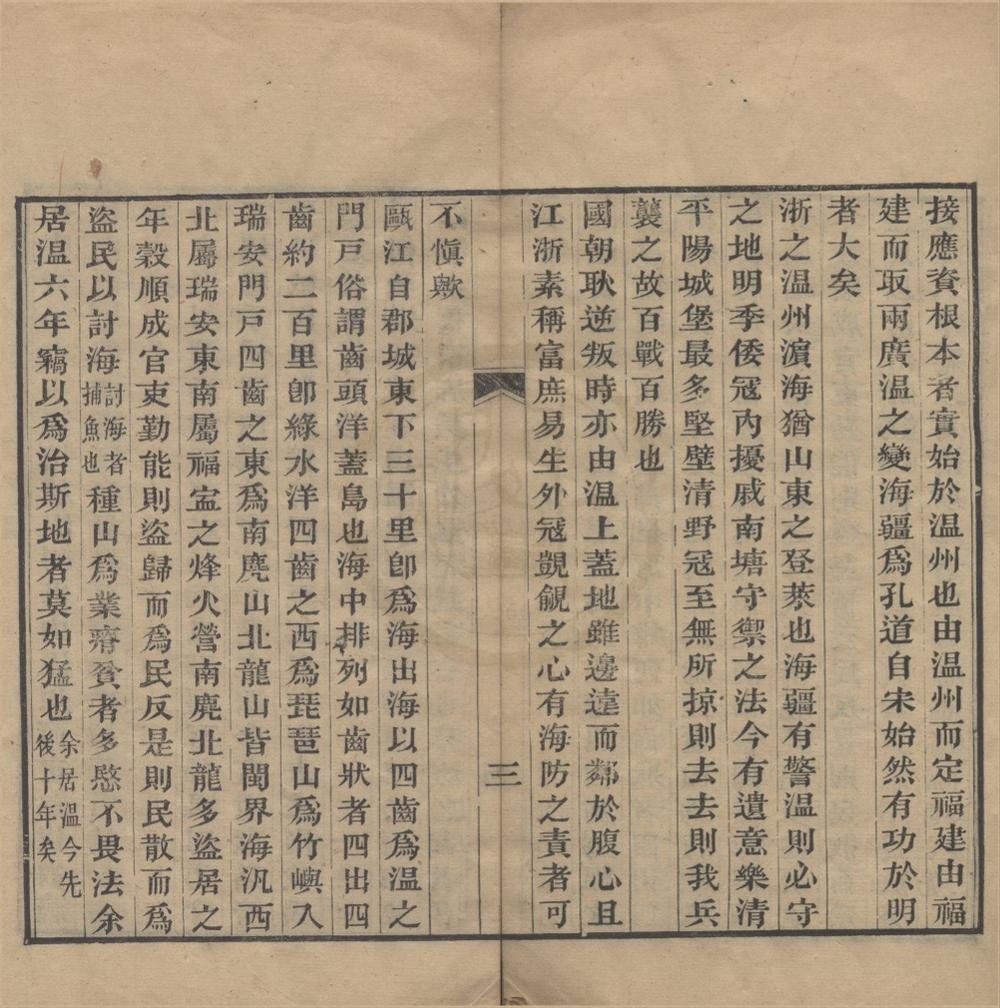 接應資根本者實始於温州也由温州而定福建由福
建而取兩廣温之變海疆爲孔道自宋始然有功於明
者大矣
浙之温州濵海猶山東之登萊也海疆有警温則必守
之地明季倭寇内擾戚南塘守禦之法今有遺意樂清
平陽城堡最多堅壁清野寇至無所掠則去去則我兵
襲之故百戰百勝也
國朝耿逆叛時亦由温上蓋地雖邊遠而鄰於腹心且
江浙素稱富庶易生外寇覬覦之心有海防之責者可
三
不愼歟
甌江自郡城東下三十里卽爲海出海以四齒爲温之
門戸俗謂齒頭洋蓋島也海中排列如齒狀者四出四
齒約二百里卽綠水洋四齒之西爲琵琶山爲竹嶼入
瑞安門戸四齒之東爲南麂山北龍山皆閩界海汛西
北屬瑞安東南屬福寍之烽火營南麂北龍多盜居之
年穀順成官吏勤能則盜歸而爲民反是則民散而爲
盜民以討海討海者捕魚也種山爲業瘠貧者多愍不畏法余
居温六年竊以爲治斯地者莫如猛也余居温今先後十年矣